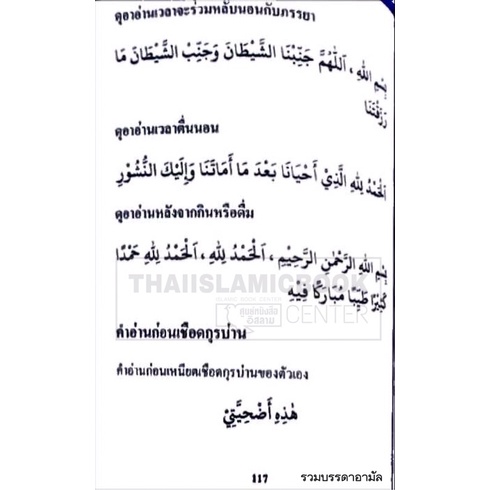 ดุอาอ่านเวลาจะร่วมหลับนอนกับภรรยา
بِسْمِ اللهِ ، اَللّٰهُمَّ جَنِّبْنَا الشَّيْطَانَ وَجَنِّبْ الشَّيْطَانَ مَا
رَزَقْتَنَا
ดุอาอ่านเวลาตื่นนอน
اَلْحَمْدُ لِلهِ الَّذِيْ أَحْيَانَا بَعْدَ مَا أَمَاتَنَا وَإِلَيْكَ النُّشُوْرِ
ดุอาอ่านหลังจากกินหรือดื่ม
بِسْمِ اللهِ الرَّحْمٰنِ الرَّحِيْمِ ، اَلْحَمْدُ لِلهِ ، اَلْحَمْدُ لِلهِ حَمْدًا
كَثِيْرًا طَيِّبًا مُبَارَكًا فِيْهِ
THAIISLAMICBOOK
ISLAMIC BOOK CENTER
ศูนย์หนังสือ
อิสลาม
CENTER
คำอ่านก่อนเชือดกุรบ่าน
คำอ่านก่อนเหนียตเชือดกุรบ่านของตัวเอง
هٰذِهِ أَضْحِيَّتِيْ
117
รวมบรรดาอามัล